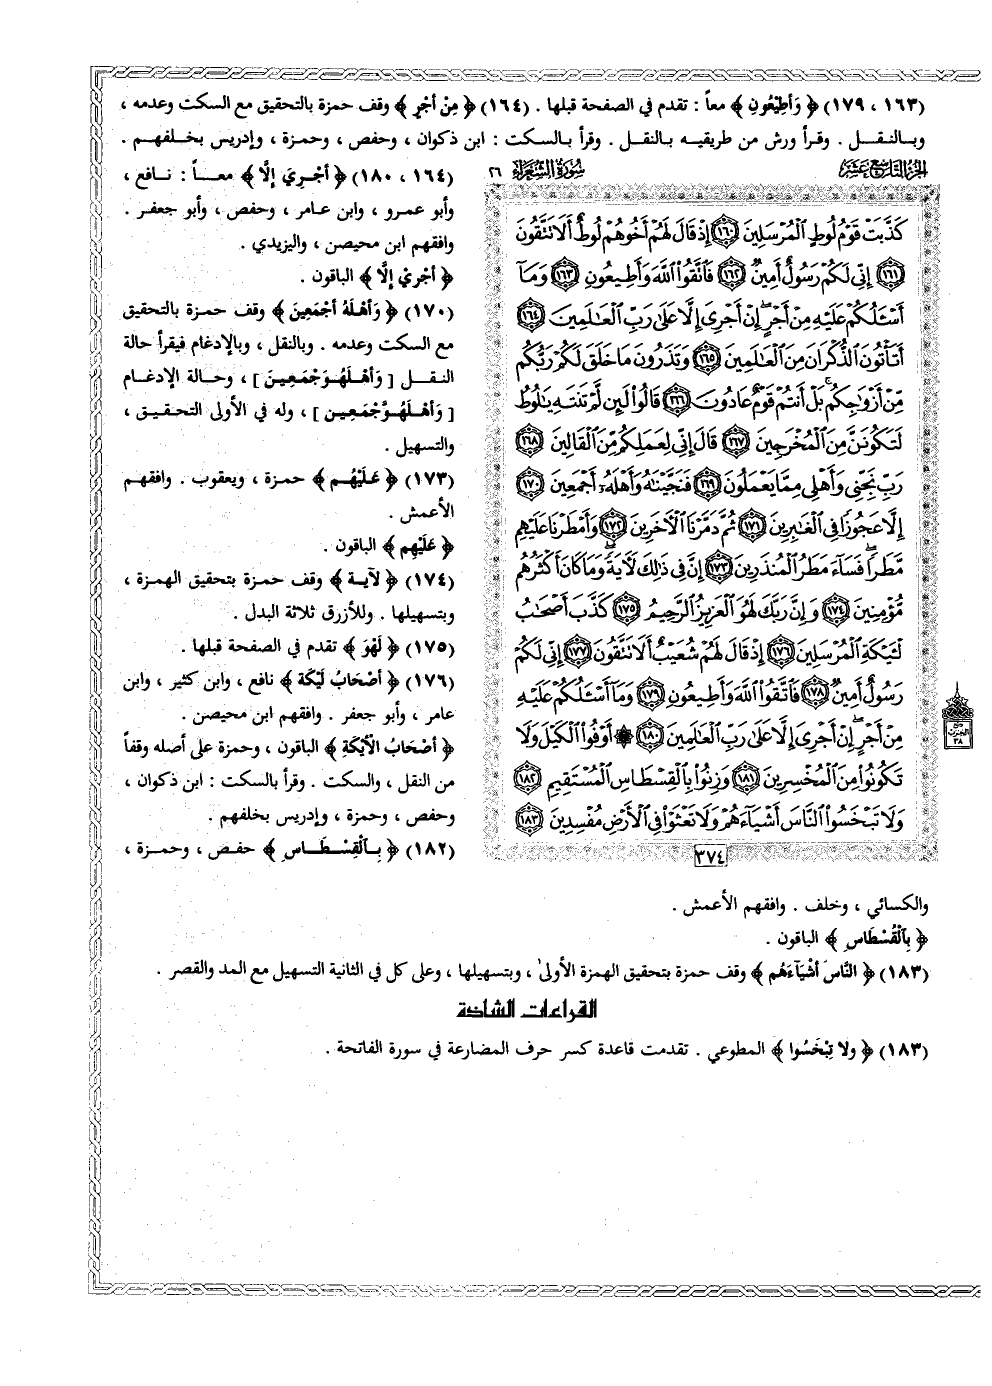 (١٦٣ ، ١٧٩) ﴿ وَأَطِيعُونِ ﴾ معاً : تقدم في الصفحة قبلها . (١٦٤) ﴿ مِنْ أَجْرٍ ﴾ وقف حمزة بالتحقيق مع السكت وعدمه ،
وبـالنـقــل . وقرأ ورش من طريقيـه بـالنقل . وقرأ بـالسكت : ابن ذكوان ، وحفص ، وحمـزة ، وإدريس بخلفـهـم .
الجزء التاسع عشر
سورة الشعراء ٢٦
كَذَّبَتْ قَوْمُ لُوطٍ الْمُرْسَلِينَ ١٦٠ إِذْ قَالَ لَهُمْ أَخُوهُمْ لُوطٌ أَلَا تَتَّقُونَ
١٦١ إِنِّي لَكُمْ رَسُولٌ أَمِينٌ ١٦٢ فَاتَّقُوا اللَّهَ وَأَطِيعُونِ ١٦٣ وَمَا
أَسْـَٔلُكُمْ عَلَيْهِ مِنْ أَجْرٍ إِنْ أَجْرِيَ إِلَّا عَلَىٰ رَبِّ الْعَالَمِينَ ١٦٤
أَتَأْتُونَ الذُّكْرَانَ مِنَ الْعَالَمِينَ ١٦٥ وَتَذَرُونَ مَا خَلَقَ لَكُمْ رَبُّكُم
مِّنْ أَزْوَاجِكُم بَلْ أَنتُمْ قَوْمٌ عَادُونَ ١٦٦ قَالُوا لَئِن لَّمْ تَنتَهِ يَا لُوطُ
لَتَكُونَنَّ مِنَ الْمُخْرَجِينَ ١٦٧ قَالَ إِنِّي لِعَمَلِكُم مِّنَ الْقَالِينَ ١٦٨
رَبِّ نَجِّنِي وَأَهْلِي مِمَّا يَعْمَلُونَ ١٦٩ فَنَجَّيْنَاهُ وَأَهْلَهُ أَجْمَعِينَ ١٧٠
إِلَّا عَجُوزًا فِي الْغَابِرِينَ ١٧١ ثُمَّ دَمَّرْنَا الْآخَرِينَ ١٧٢ وَأَمْطَرْنَا عَلَيْهِم
مَّطَرًا فَسَاءَ مَطَرُ الْمُنذَرِينَ ١٧٣ إِنَّ فِي ذَٰلِكَ لَآيَةً وَمَا كَانَ أَكْثَرُهُم
مُّؤْمِنِينَ ١٧٤ وَإِنَّ رَبَّكَ لَهُوَ الْعَزِيزُ الرَّحِيمُ ١٧٥ كَذَّبَ أَصْحَابُ
لْـَٔيْكَةِ الْمُرْسَلِينَ ١٧٦ إِذْ قَالَ لَهُمْ شُعَيْبٌ أَلَا تَتَّقُونَ ١٧٧ إِنِّي لَكُمْ
رَسُولٌ أَمِينٌ ١٧٨ فَاتَّقُوا اللَّهَ وَأَطِيعُونِ ١٧٩ وَمَا أَسْـَٔلُكُمْ عَلَيْهِ
مِنْ أَجْرٍ إِنْ أَجْرِيَ إِلَّا عَلَىٰ رَبِّ الْعَالَمِينَ ١٨٠ ۞ أَوْفُوا الْكَيْلَ وَلَا
تَكُونُوا مِنَ الْمُخْسِرِينَ ١٨١ وَزِنُوا بِالْقِسْطَاسِ الْمُسْتَقِيمِ ١٨٢
وَلَا تَبْخَسُوا النَّاسَ أَشْيَاءَهُمْ وَلَا تَعْثَوْا فِي الْأَرْضِ مُفْسِدِينَ ١٨٣
٣٧٤
(١٦٤ ، ١٨٠) ﴿ أَجْرِيَ إِلَّا ﴾ معـــاً : نـافع ،
وأبو عمرو ، وابن عـامر ، وحفص ، وأبو جعفر .
وافقهم ابن محيصن ، واليزيدي .
﴿ أَجْرِيْ إِلَّا ﴾ الباقون .
(١٧٠) ﴿ وَأَهْلَهُ أَجْمَعِينَ ﴾ وقف حمـزة بـالتحقيق
مع السكت وعدمه . وبالنقل ، وبالإدغام فيقرأ حالة
النقـل [ وَأَهْـلَـهُـوَجْـمَـعِـيـنَ ] ، وحـالـة الإدغـام
[ وَأَهْلَـهُـوَّجْمَعِـيـن ] ، وله في الأولى التحقـيـق ،
والتسهيل .
(١٧٣) ﴿ عَـلَيْهُـم ﴾ حمـزة ، ويعقوب . وافقهـم
الأعمش .
﴿ عَلَيْهِم ﴾ الباقون .
(١٧٤) ﴿ لَآيـة ﴾ وقف حمـزة بـتحقيق الهمـزة ،
وبتسهيلها . وللأزرق ثلاثة البدل .
(١٧٥) ﴿ لَهْوَ ﴾ تقدم في الصفحة قبلها .
(١٧٦) ﴿ أَصْحَابُ لَيْكَةَ ﴾ نافع ، وابن كثير ، وابن
عامر ، وأبو جعفر . وافقهم ابن محيصن .
﴿ أَصْحَابُ الْأَيْكَةِ ﴾ الباقون ، وحمزة على أصله وقفاً
من النقل ، والسكت . وقرأ بـالسكت : ابن ذكوان ،
وحفص ، وحمزة ، وإدريس بخلفهم .
(١٨٢) ﴿ بِـالْقِسْـطَـاسِ ﴾ حفـص ، وحمـزة ،
والكسائي ، وخلف . وافقهم الأعمش .
﴿ بِالْقُسْطَاسِ ﴾ الباقون .
(١٨٣) ﴿ النَّاسَ أَشْيَآءَهُم ﴾ وقف حمزة بتحقيق الهمزة الأولىٰ ، وبتسهيلها ، وعلى كل في الثانية التسهيل مع المد والقصر .
القراءات الشاذة
(١٨٣) ﴿ ولا تِبْخَسُوا ﴾ المطوعي . تقدمت قاعدة كسر حرف المضارعة في سورة الفاتحة .